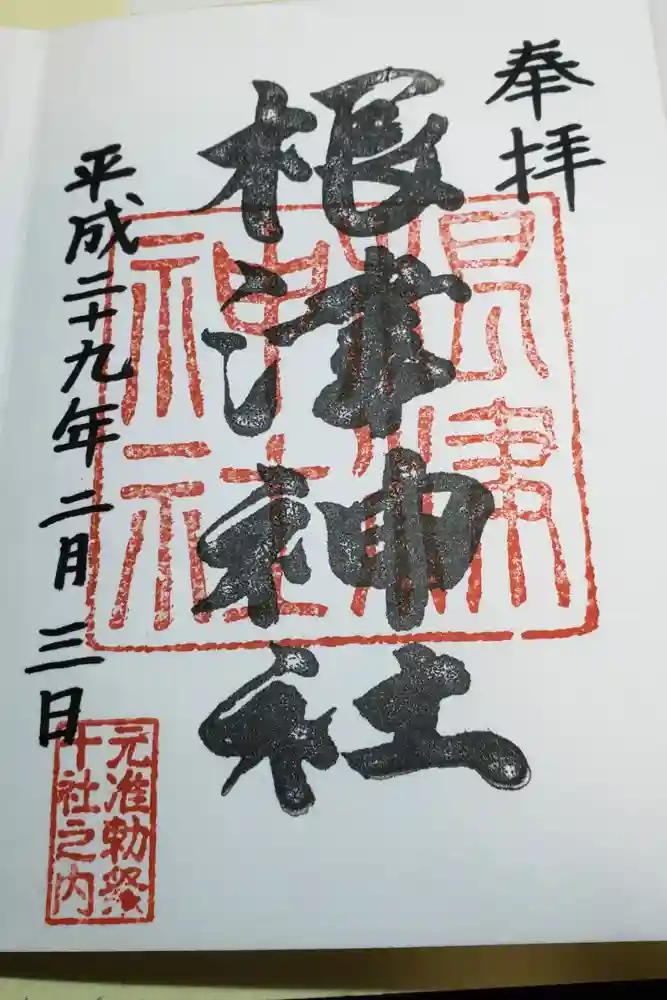 奉拝
根津神社
根津
神社
平成二十九年二月三日
元准勅祭
十社之内